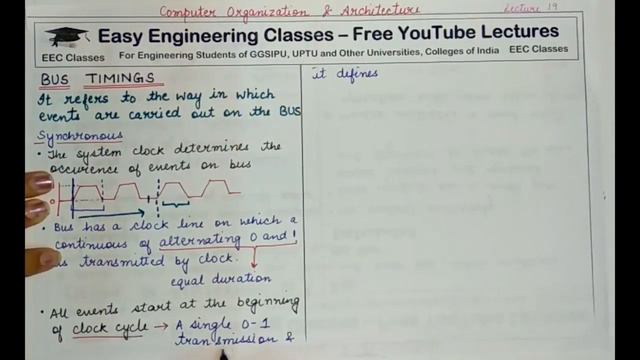 Computer Organization & Architecture
Lecture 19
Easy Engineering Classes – Free YouTube Lectures
EEC Classes
For Engineering Students of GGSIPU, UPTU and Other Universities, Colleges of India
EEC Classes
BUS TIMINGS
It refers to the way in which
events are carried out on the BUS
Synchronous
• The system clock determines the
occurence of events on bus
0
• Bus has a clock line on which a
continuous of alternating 0 and 1
is transmitted by clock.
equal duration
• All events start at the beginning
of clock cycle → A single 0-1
transmission &
it defines